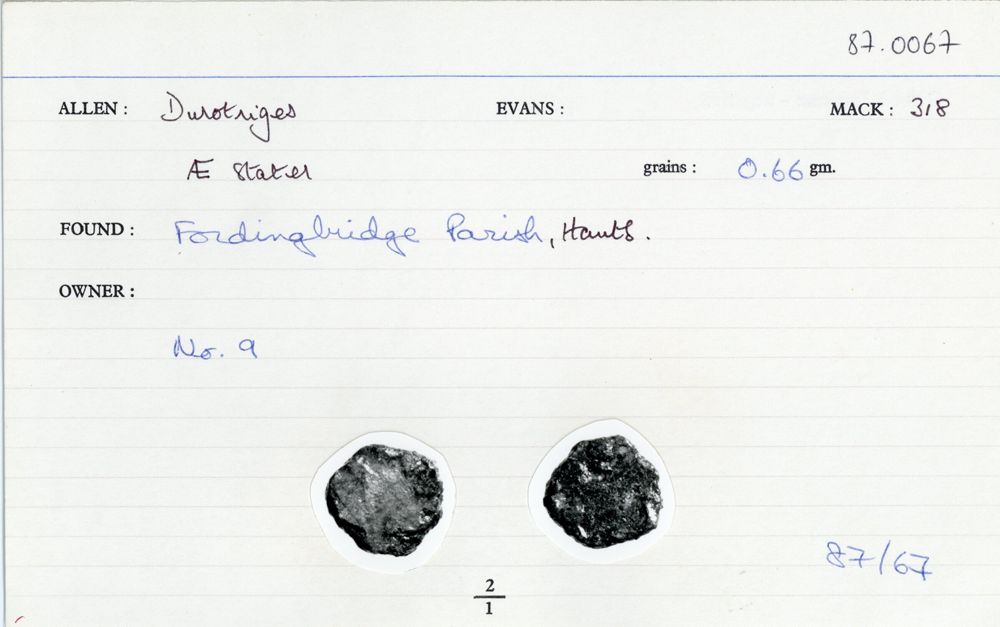 87.0067
ALLEN : Durotriges EVANS : MACK : 318
Æ Stater grains : 0.66 gm.
FOUND : Fordingbridge Parish, Hants.
OWNER :
No. 9
87/67
2
1